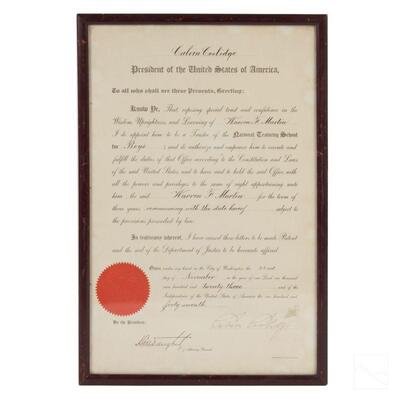 Calvin Coolidge
President of the United States of America,
To all who shall see these Presents, Greeting:
Know Ye, That reposing special trust and confidence in the
Wisdom, Uprightness, and Learning of Warren F. Martin
I do appoint him to be a Trustee of the National Training School
for Boys ; and do authorize and empower him to execute and
fulfill the duties of that Office according to the Constitution and Laws
of the said United States, and to have and to hold the said Office, with
all the powers and privileges to the same of right appertaining unto
him, the said Warren F. Martin for the term of
three years, commencing with the date hereof subject to
the provisions prescribed by law.
In testimony whereof, I have caused these letters to be made Patent
and the seal of the Department of Justice to be hereunto affixed.
Given under my hand at the City of Washington, the
day of November in the year of our Lord one thousand
nine hundred and twenty three and of the
Independence of the United States of America the one hundred and
forty eventh.
Calvin Coolidge
By the President:
Attorney General.